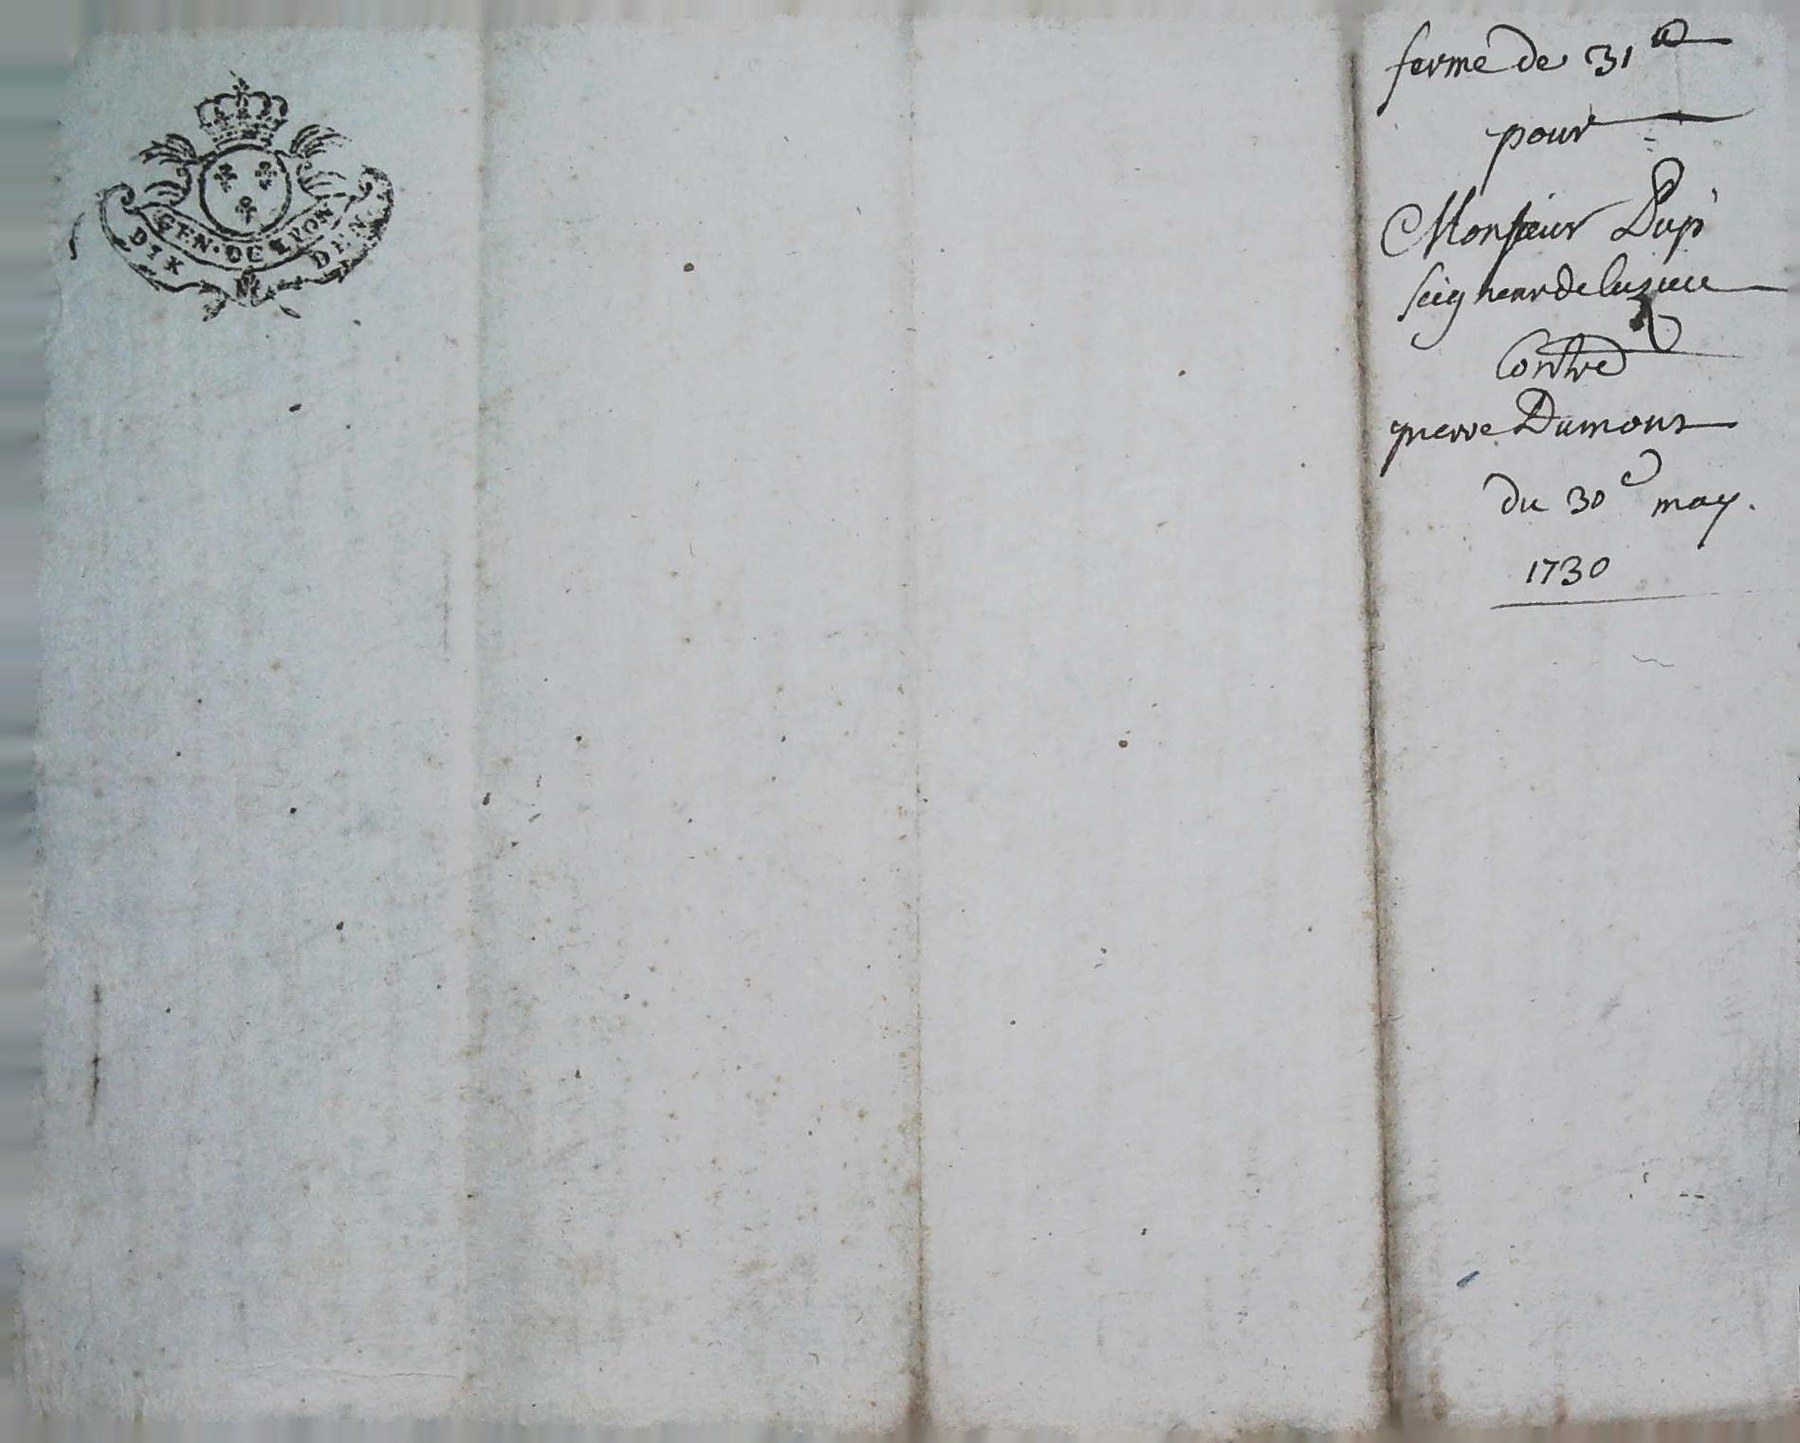 GEN. DE LYON
DIX DEN.
ferme de 31 tt
pour
Monsieur Dupi
seigneur de
Contre
pierre Dumont
du 30e may.
1730